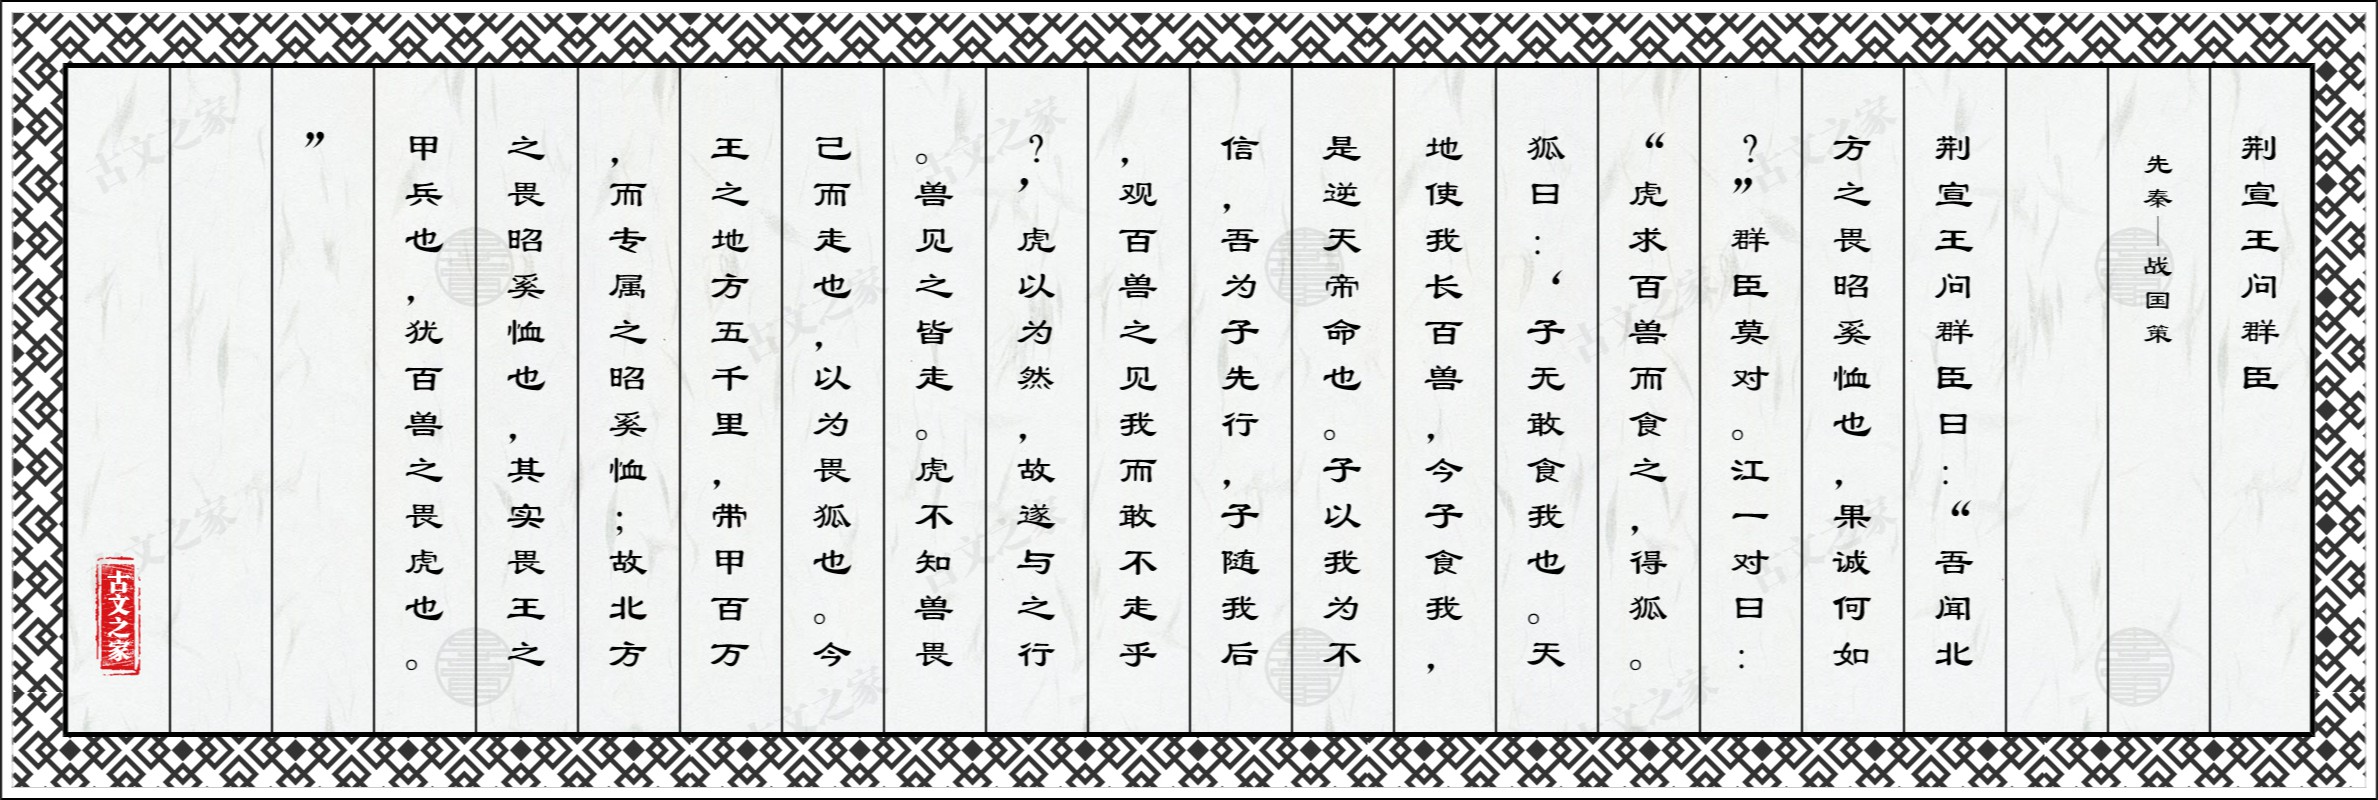 荆宣王问群臣
先秦—战国策
荆宣王问群臣曰：“吾闻北
方之畏昭奚恤也，果诚何如
？”群臣莫对。江一对曰：
“虎求百兽而食之，得狐。
狐曰：‘子无敢食我也。天
地使我长百兽，今子食我，
是逆天帝命也。子以我为不
信，吾为子先行，子随我后
，观百兽之见我而敢不走乎
？’虎以为然，故遂与之行
。兽见之皆走。虎不知兽畏
己而走也，以为畏狐也。今
王之地方五千里，带甲百万
，而专属之昭奚恤；故北方
之畏昭奚恤也，其实畏王之
甲兵也，犹百兽之畏虎也。
”
古文之家